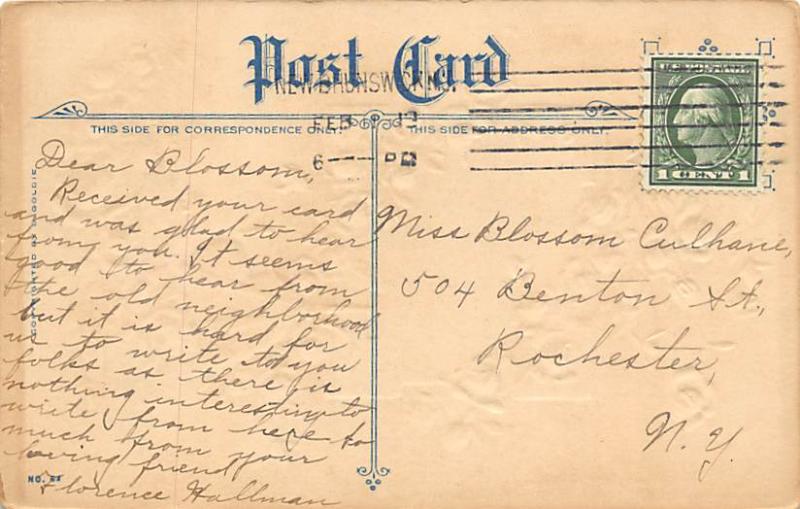 Post Card
NEW BRUNSWICK N.J.
FEB 13
6 PM
U.S. POSTAGE
1 CENT 1
THIS SIDE FOR CORRESPONDENCE ONLY.
THIS SIDE FOR ADDRESS ONLY.
Dear Blossom,
Received your card
and was glad to hear
from you. It seems
good to hear from
the old neighborhood
but it is hard for
us to write to you
folks as there is
nothing interesting to
write from here so
much from your
loving friend
Florence Hallman
Miss Blossom Culhane,
504 Benton St.,
Rochester,
N.Y.
COPYRIGHTED BY S. GOLDIE
NO.